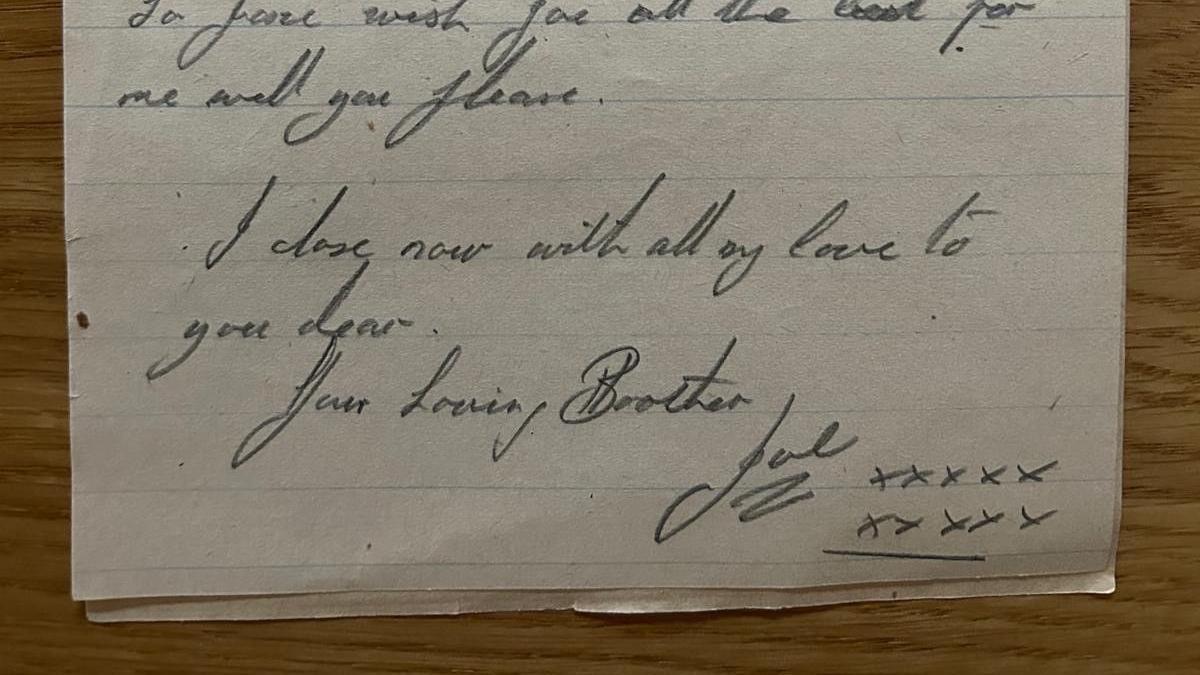 wish Joe all the best for
me will you please.
I close now with all my love to
you dear.
Your Loving Brother
Joe xxxxx
xxxxx